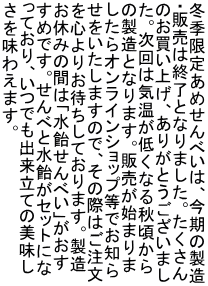 冬季限定あめせんべいは、今期の製造
・販売は終了となりました。たくさん
のお買い上げ、ありがとうございまし
た。次回は気温が低くなる秋頃から
の製造となります。販売が始まりま
したらオンラインショップ等でお知ら
せをいたしますので、その際はご注文
を心よりお待ちしております。製造
お休みの間は「水飴せんべい」がおす
すめです。せんべと水飴がセットにな
っており、いつでも出来立ての美味し
さを味わえます。